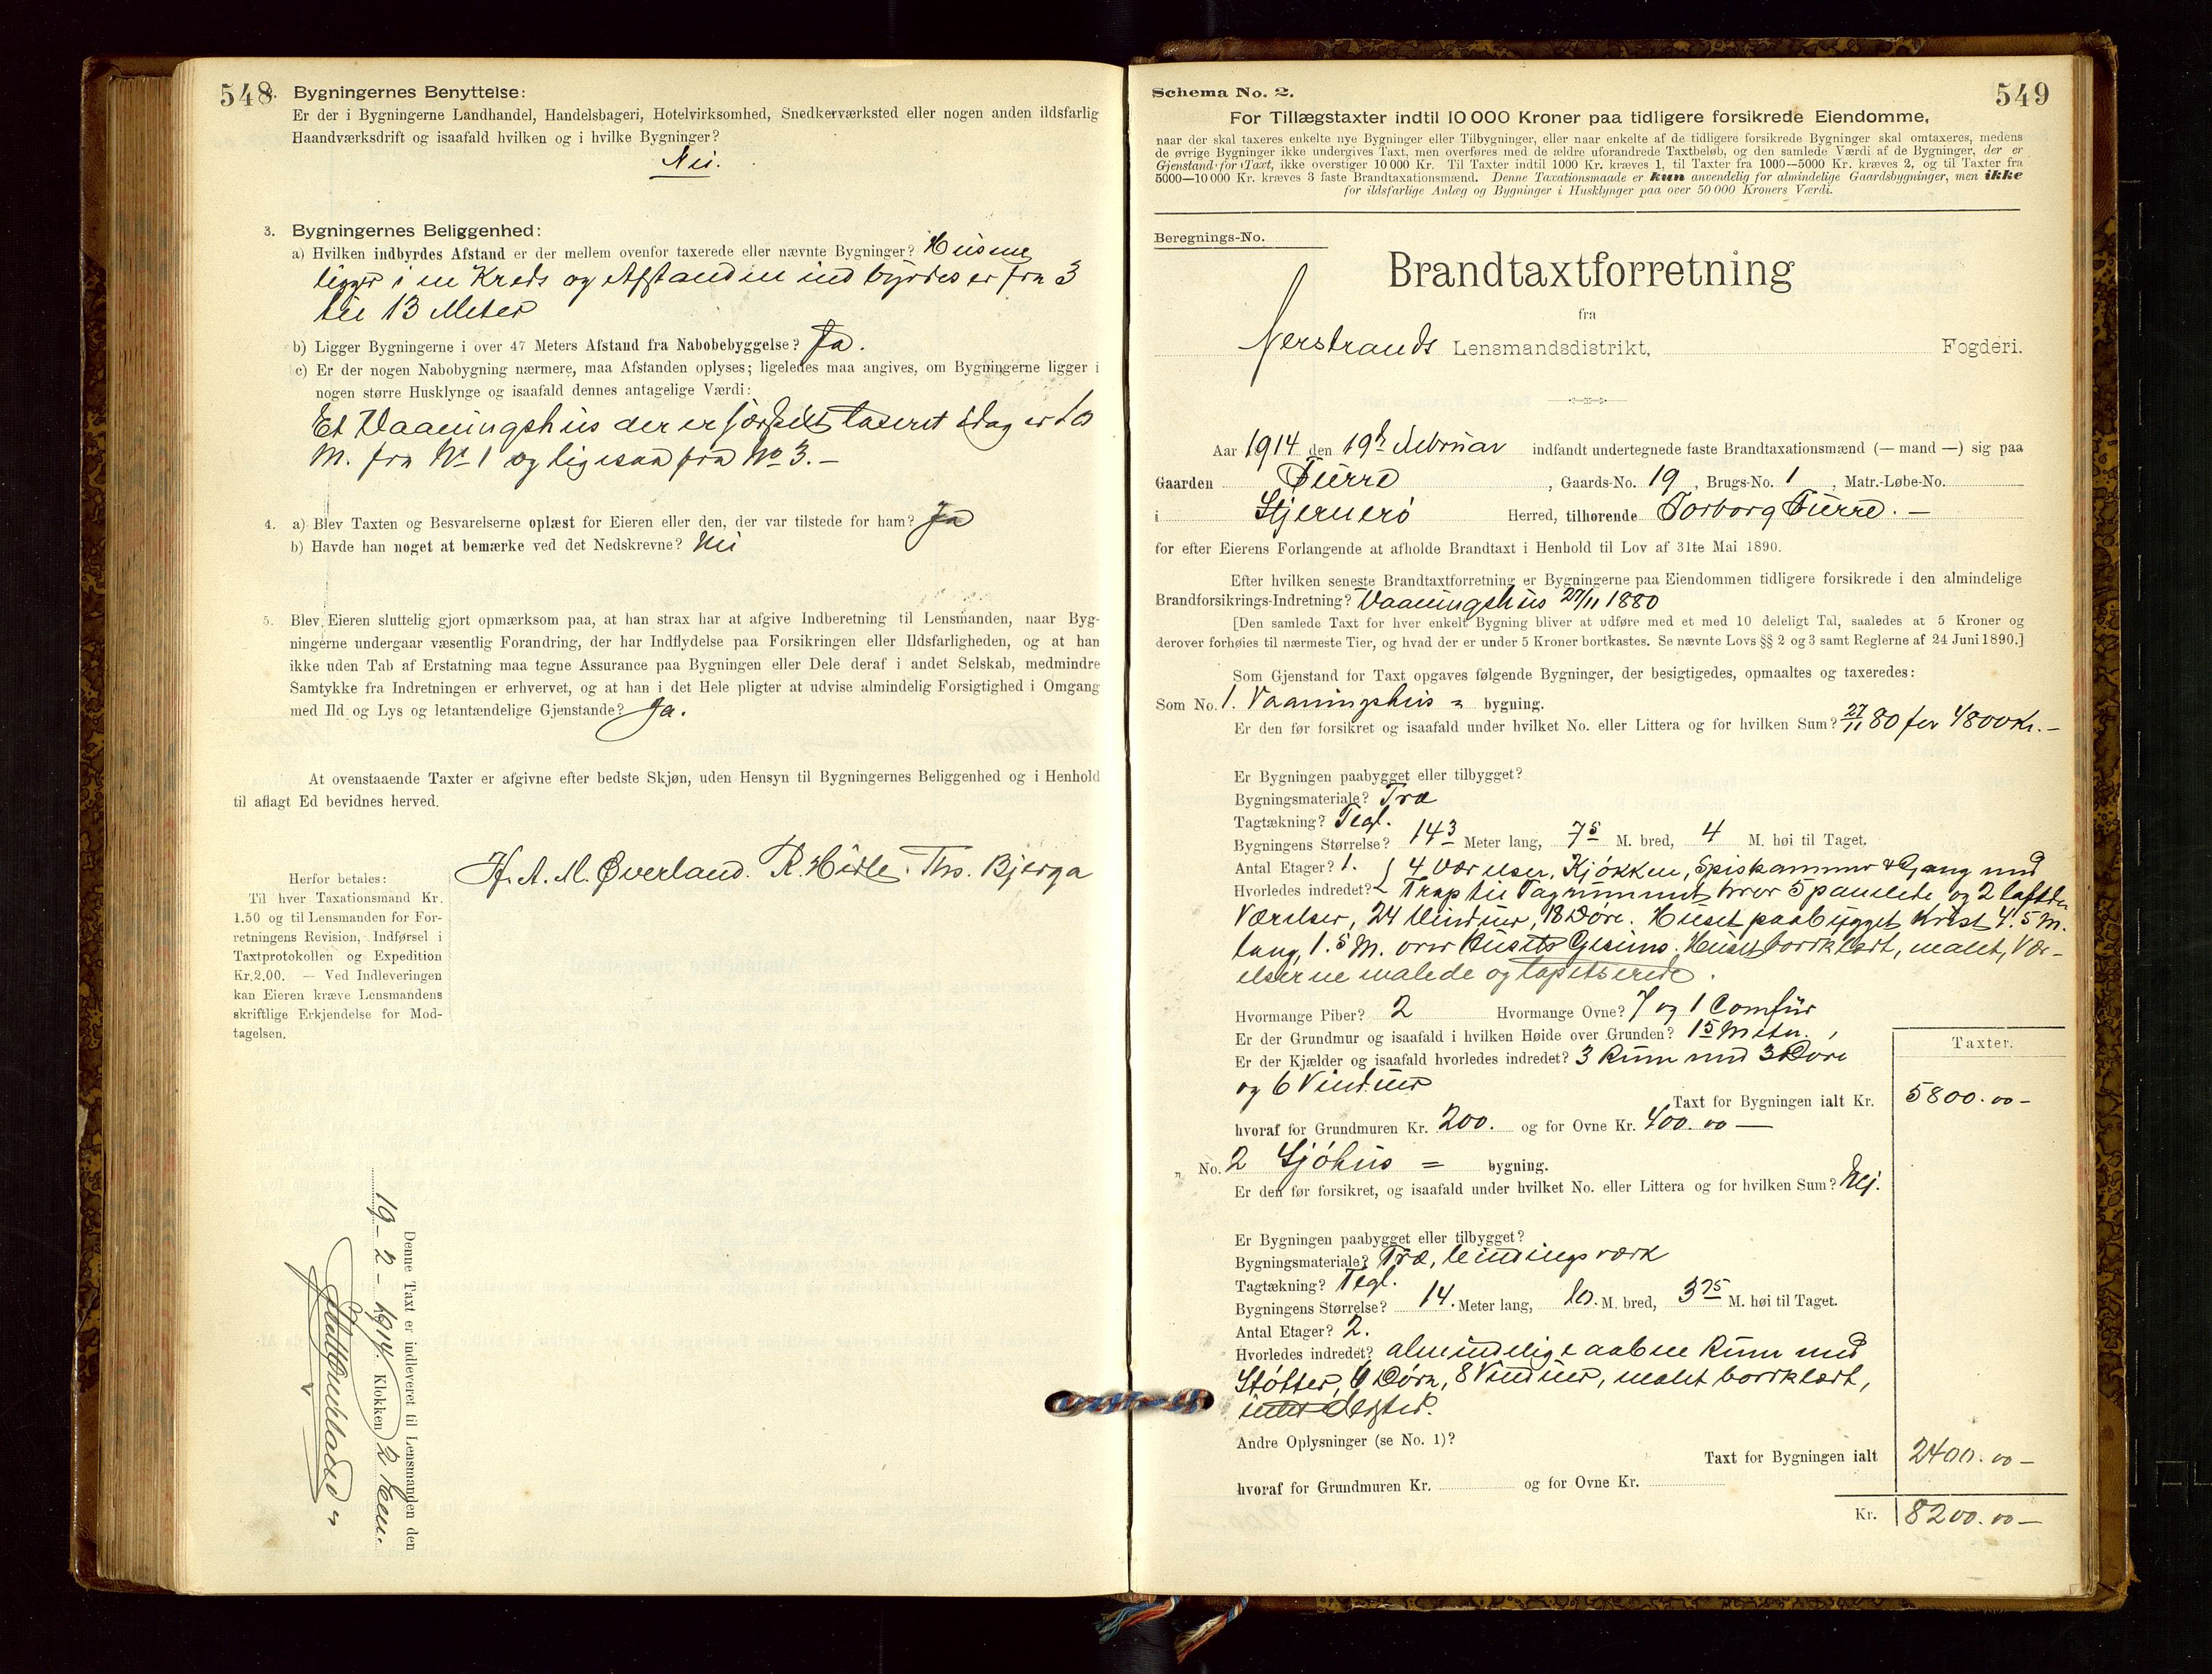 548
2. Bygningernes Benyttelse:
Er der i Bygningerne Landhandel, Handelsbageri, Hotelvirksomhed, Snedkerværksted eller nogen anden ildsfarlig
Haandværksdrift og isaafald hvilken og i hvilke Bygninger?
Nei.
3. Bygningernes Beliggenhed:
a) Hvilken indbyrdes Afstand er der mellem ovenfor taxerede eller nævnte Bygninger? Husene
ligger i en Kreds og Afstanden indbyrdes er fra 3
til 13 Meter
b) Ligger Bygningerne i over 47 Meters Afstand fra Nabobebyggelse? Ja.
c) Er der nogen Nabobygning nærmere, maa Afstanden oplyses; ligeledes maa angives, om Bygningerne ligger i
nogen større Husklynge og isaafald dennes antagelige Værdi:
Et Vaaningshus der er særskilt taxeret idag er 10
M. fra No 1 og ligesaa fra No 3. –
4. a) Blev Taxten og Besvarelserne oplæst for Eieren eller den, der var tilstede for ham? Ja
b) Havde han noget at bemærke ved det Nedskrevne? Nei
5. Blev Eieren sluttelig gjort opmærksom paa, at han strax har at afgive Indberetning til Lensmanden, naar Byg-
ningerne undergaar væsentlig Forandring, der har Indflydelse paa Forsikringen eller Ildsfarligheden, og at han
ikke uden Tab af Erstatning maa tegne Assurance paa Bygningen eller Dele deraf i andet Selskab, medmindre
Samtykke fra Indretningen er erhvervet, og at han i det Hele pligter at udvise almindelig Forsigtighed i Omgang
med Ild og Lys og letantændelige Gjenstande? Ja.
At ovenstaaende Taxter er afgivne efter bedste Skjøn, uden Hensyn til Bygningernes Beliggenhed og i Henhold
til aflagt Ed bevidnes herved.
H. A. M. Øverland. R. Hidle. Ths. Bjerga
Herfor betales:
Til hver Taxationsmand Kr.
1.50 og til Lensmanden for For-
retningens Revision, Indførsel i
Taxtprotokollen og Expedition
Kr. 2.00. — Ved Indleveringen
kan Eieren kræve Lensmandens
skriftlige Erkjendelse for Mod-
tagelsen.
Denne Taxt er indleveret til Lensmanden den
19 – 2 – 1914. Klokken 2 Em.
549
Schema No. 2.
For Tillægstaxter indtil 10 000 Kroner paa tidligere forsikrede Eiendomme,
naar der skal taxeres enkelte nye Bygninger eller Tilbygninger, eller naar enkelte af de tidligere forsikrede Bygninger skal omtaxeres, medens
de øvrige Bygninger ikke undergives Taxt, men overføres med de ældre uforandrede Taxtbeløb, og den samlede Værdi af de Bygninger, der er
Gjenstand for Taxt, ikke overstiger 10 000 Kr. Til Taxter indtil 1000 Kr. kræves 1, til Taxter fra 1000—5000 Kr. kræves 2, og til Taxter fra
5000—10 000 Kr. kræves 3 faste Brandtaxationsmænd. Denne Taxationsmaade er kun anvendelig for almindelige Gaardsbygninger, men ikke
for ildsfarlige Anlæg og Bygninger i Husklynger paa over 50 000 Kroners Værdi.
Beregnings-No.
Brandtaxtforretning
fra
Nerstrands Lensmandsdistrikt, Fogderi.
Aar 1914 den 19de Februar indfandt undertegnede faste Brandtaxationsmænd (— mand —) sig paa
Gaarden Furre, Gaards-No. 19, Brugs-No. 1, Matr.-Løbe-No.
i Stjernerö Herred, tilhørende Torborg Furre. –
for efter Eierens Forlangende at afholde Brandtaxt i Henhold til Lov af 31te Mai 1890.
Efter hvilken seneste Brandtaxtforretning er Bygningerne paa Eiendommen tidligere forsikrede i den almindelige
Brandforsikrings-Indretning? Vaaningshus 27/11 1880
[Den samlede Taxt for hver enkelt Bygning bliver at udføre med et med 10 deleligt Tal, saaledes at 5 Kroner og
derover forhøies til nærmeste Tier, og hvad der er under 5 Kroner bortkastes. Se nævnte Lovs §§ 2 og 3 samt Reglerne af 24 Juni 1890.]
Som Gjenstand for Taxt opgaves følgende Bygninger, der besigtigedes, opmaaltes og taxeredes:
Som No. 1. Vaaningshus = bygning.
Er den før forsikret og isaafald under hvilket No. eller Littera og for hvilken Sum? 27/11 80 for 4800 Kr. –
Er Bygningen paabygget eller tilbygget?
Bygningsmateriale? Træ
Tagtækning? Tegl.
Bygningens Størrelse? 14 3 Meter lang, 7 5 M. bred, 4 M. høi til Taget.
Antal Etager? 1. 4 Værelser, Kjökken, Spiskammer & Gang med
Hvorledes indredet? Trap til Tagrummet hvor 5 panelede og 2 loftede
Værelser, 24 Vinduer, 18 Döre. Huset paabygget Kvist 4.5 M.
lang, 1.5 M. over Husets Gesims. Huset bordklædt, malet, Vær-
elserne malede og tapetserede.
Hvormange Piber? 2 Hvormange Ovne? 7 og 1 Comfür
Er der Grundmur og isaafald i hvilken Høide over Grunden? 1 5 Meter.
Er der Kjælder og isaafald hvorledes indredet? 3 Rum med 3 Döre
og 6 Vinduer
Taxter.
Taxt for Bygningen ialt Kr. 5800.00 –
hvoraf for Grundmuren Kr. 200. og for Ovne Kr. 400.00 —
„ No. 2 Sjöhus = bygning.
Er den før forsikret, og isaafald under hvilket No. eller Littera og for hvilken Sum? Nej.
Er Bygningen paabygget eller tilbygget?
Bygningsmateriale? Træ, bindingsværk
Tagtækning? Tegl.
Bygningens Størrelse? 14. Meter lang, 10. M. bred, 3 75 M. høi til Taget.
Antal Etager? 2.
Hvorledes indredet? almindelige aabne Rum med
Stötter, 6 Döre, 8 Vinduer, malet bordklædt,
Andre Oplysninger (se No. 1)?
Taxt for Bygningen ialt 2400.00 –
hvoraf for Grundmuren Kr. og for Ovne Kr.
Kr. 8200.00 –